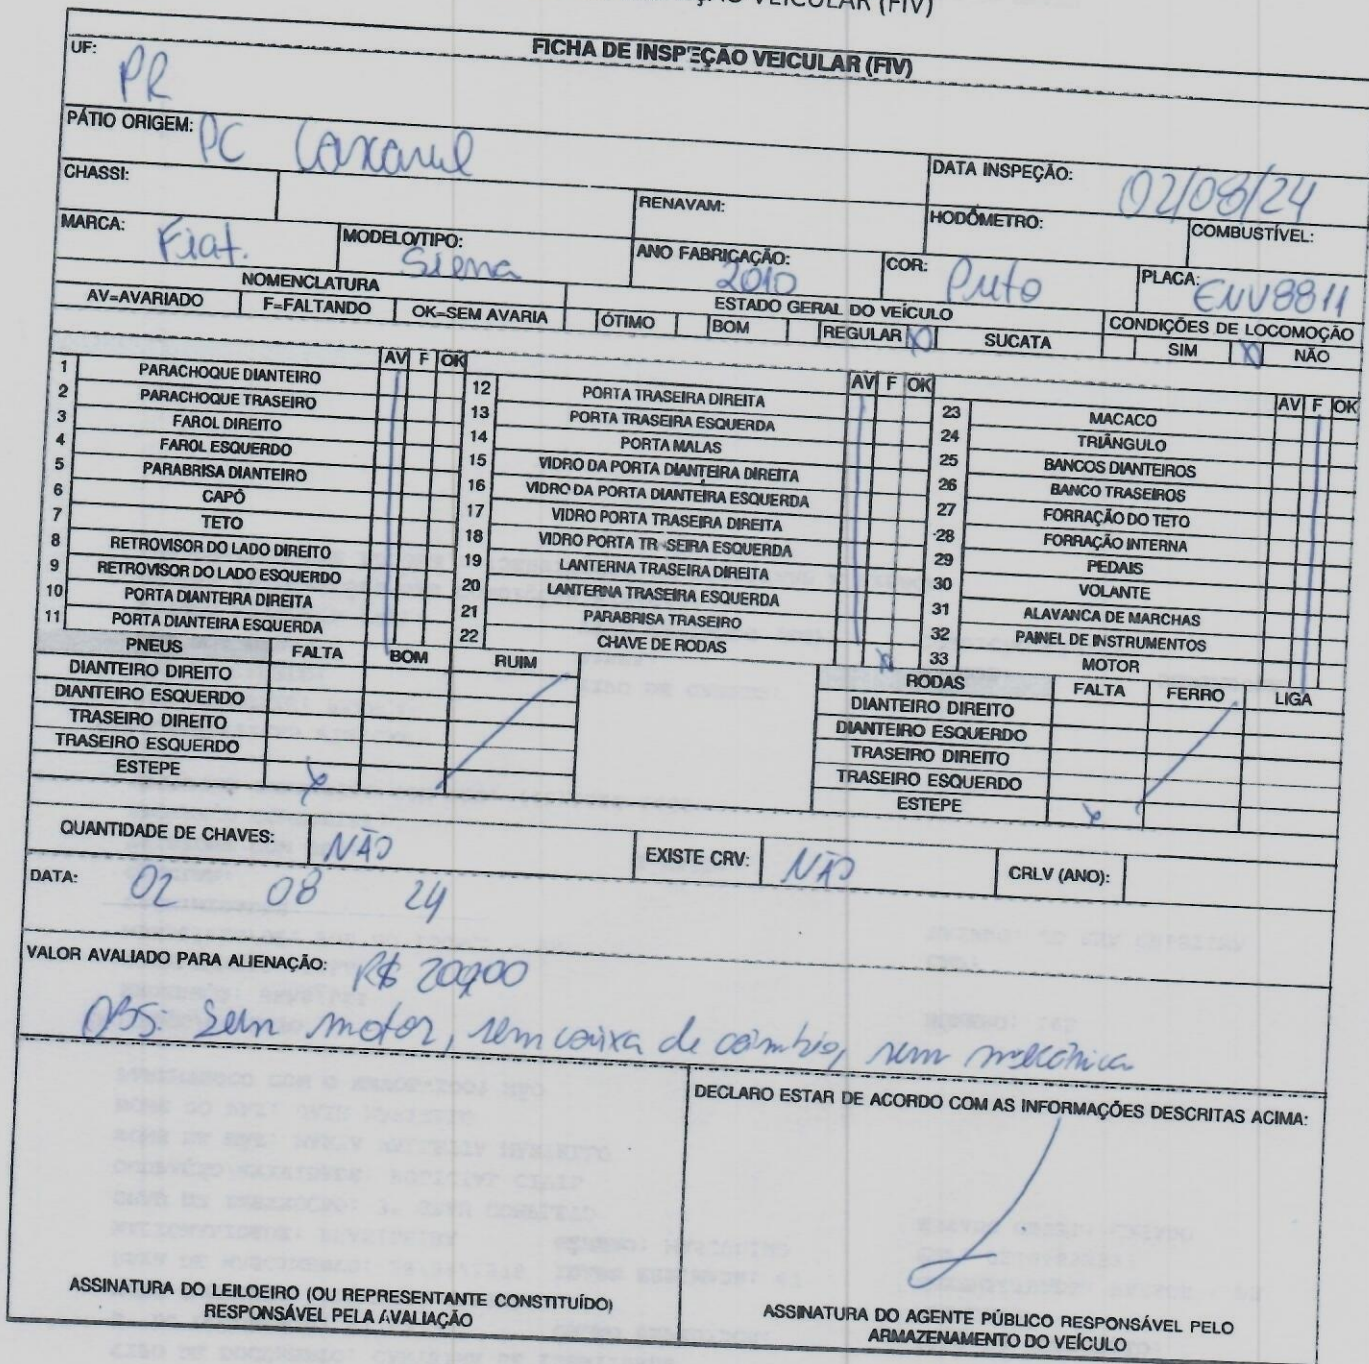 ÇÃO VEICULAR (FIV)
FICHA DE INSPEÇÃO VEICULAR (FIV)
UF: PR
PÁTIO ORIGEM: PC
DATA INSPEÇÃO: 02/08/24
CHASSI:
RENAVAM:
HODÔMETRO:
COMBUSTÍVEL:
MARCA: Fiat.
MODELO/TIPO: Siena
ANO FABRICAÇÃO: 2010
COR: Preto
PLACA: ENV8811
NOMENCLATURA
ESTADO GERAL DO VEÍCULO
CONDIÇÕES DE LOCOMOÇÃO
AV=AVARIADO F=FALTANDO OK=SEM AVARIA ÓTIMO BOM REGULAR X SUCATA SIM X NÃO
AV F OK
1 PARACHOQUE DIANTEIRO
2 PARACHOQUE TRASEIRO
3 FAROL DIREITO
4 FAROL ESQUERDO
5 PARABRISA DIANTEIRO
6 CAPÔ
7 TETO
8 RETROVISOR DO LADO DIREITO
9 RETROVISOR DO LADO ESQUERDO
10 PORTA DIANTEIRA DIREITA
11 PORTA DIANTEIRA ESQUERDA
AV F OK
12 PORTA TRASEIRA DIREITA
13 PORTA TRASEIRA ESQUERDA
14 PORTA MALAS
15 VIDRO DA PORTA DIANTEIRA DIREITA
16 VIDRO DA PORTA DIANTEIRA ESQUERDA
17 VIDRO PORTA TRASEIRA DIREITA
18 VIDRO PORTA TR SEIRA ESQUERDA
19 LANTERNA TRASEIRA DIREITA
20 LANTERNA TRASEIRA ESQUERDA
21 PARABRISA TRASEIRO
22 CHAVE DE RODAS X
AV F OK
23 MACACO
24 TRIÂNGULO
25 BANCOS DIANTEIROS
26 BANCO TRASEIROS
27 FORRAÇÃO DO TETO
28 FORRAÇÃO INTERNA
29 PEDAIS
30 VOLANTE
31 ALAVANCA DE MARCHAS
32 PAINEL DE INSTRUMENTOS
33 MOTOR
PNEUS FALTA BOM RUIM
DIANTEIRO DIREITO
DIANTEIRO ESQUERDO
TRASEIRO DIREITO
TRASEIRO ESQUERDO
ESTEPE X
RODAS FALTA FERRO LIGA
DIANTEIRO DIREITO
DIANTEIRO ESQUERDO
TRASEIRO DIREITO
TRASEIRO ESQUERDO
ESTEPE X
QUANTIDADE DE CHAVES: NÃO EXISTE CRV: NÃO CRLV (ANO):
DATA: 02 08 24
VALOR AVALIADO PARA ALIENAÇÃO: R$ 200,00
OBS: Sem motor, sem caixa de câmbio, sem mecânica
DECLARO ESTAR DE ACORDO COM AS INFORMAÇÕES DESCRITAS ACIMA:
ASSINATURA DO LEILOEIRO (OU REPRESENTANTE CONSTITUÍDO)
RESPONSÁVEL PELA AVALIAÇÃO
ASSINATURA DO AGENTE PÚBLICO RESPONSÁVEL PELO
ARMAZENAMENTO DO VEÍCULO